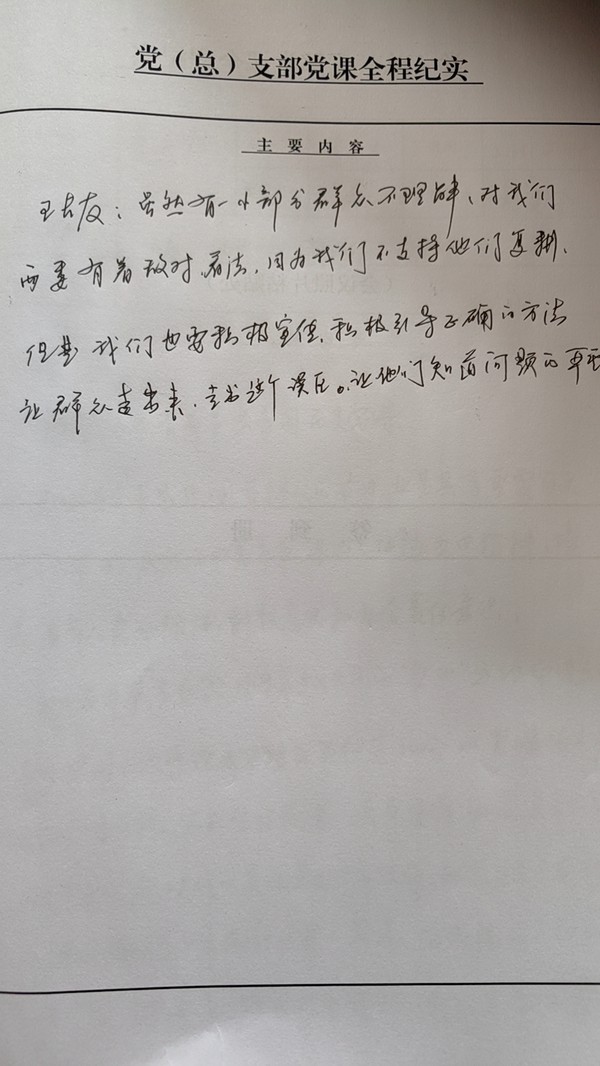 党（总）支部党课全程纪实
主要内容
王友：虽然有一小部分群众不理解、对我们
两委有着敌对看法，因为我们不支持他们复耕、
但是我们也要积极宣传、积极引导正确的方法
让群众走出来、走出这个误区。让他们知道问题的
签到册